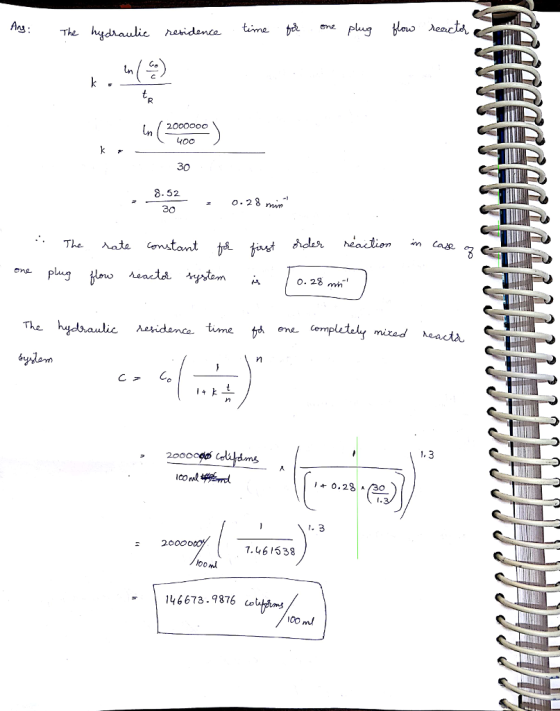 Ans: The hydraulic residence time for one plug flow reactor
k = ln(C₀/C) / t_R
k = ln(2000000/400) / 30
= 8.52/30 = 0.28 min⁻¹
∴ The rate constant for first order reaction in case of
one plug flow reactor system is 0.28 min⁻¹
The hydraulic residence time for one completely mixed reactor
system
C = C₀ (1 / (1 + k t/n))ⁿ
= 2000000 coliforms / 100 ml × (1 / [1 + 0.28 × (30/1.3)])^1.3
= 2000000/100ml (1 / 7.461538)^1.3
= 146673.9876 coliforms/100 ml